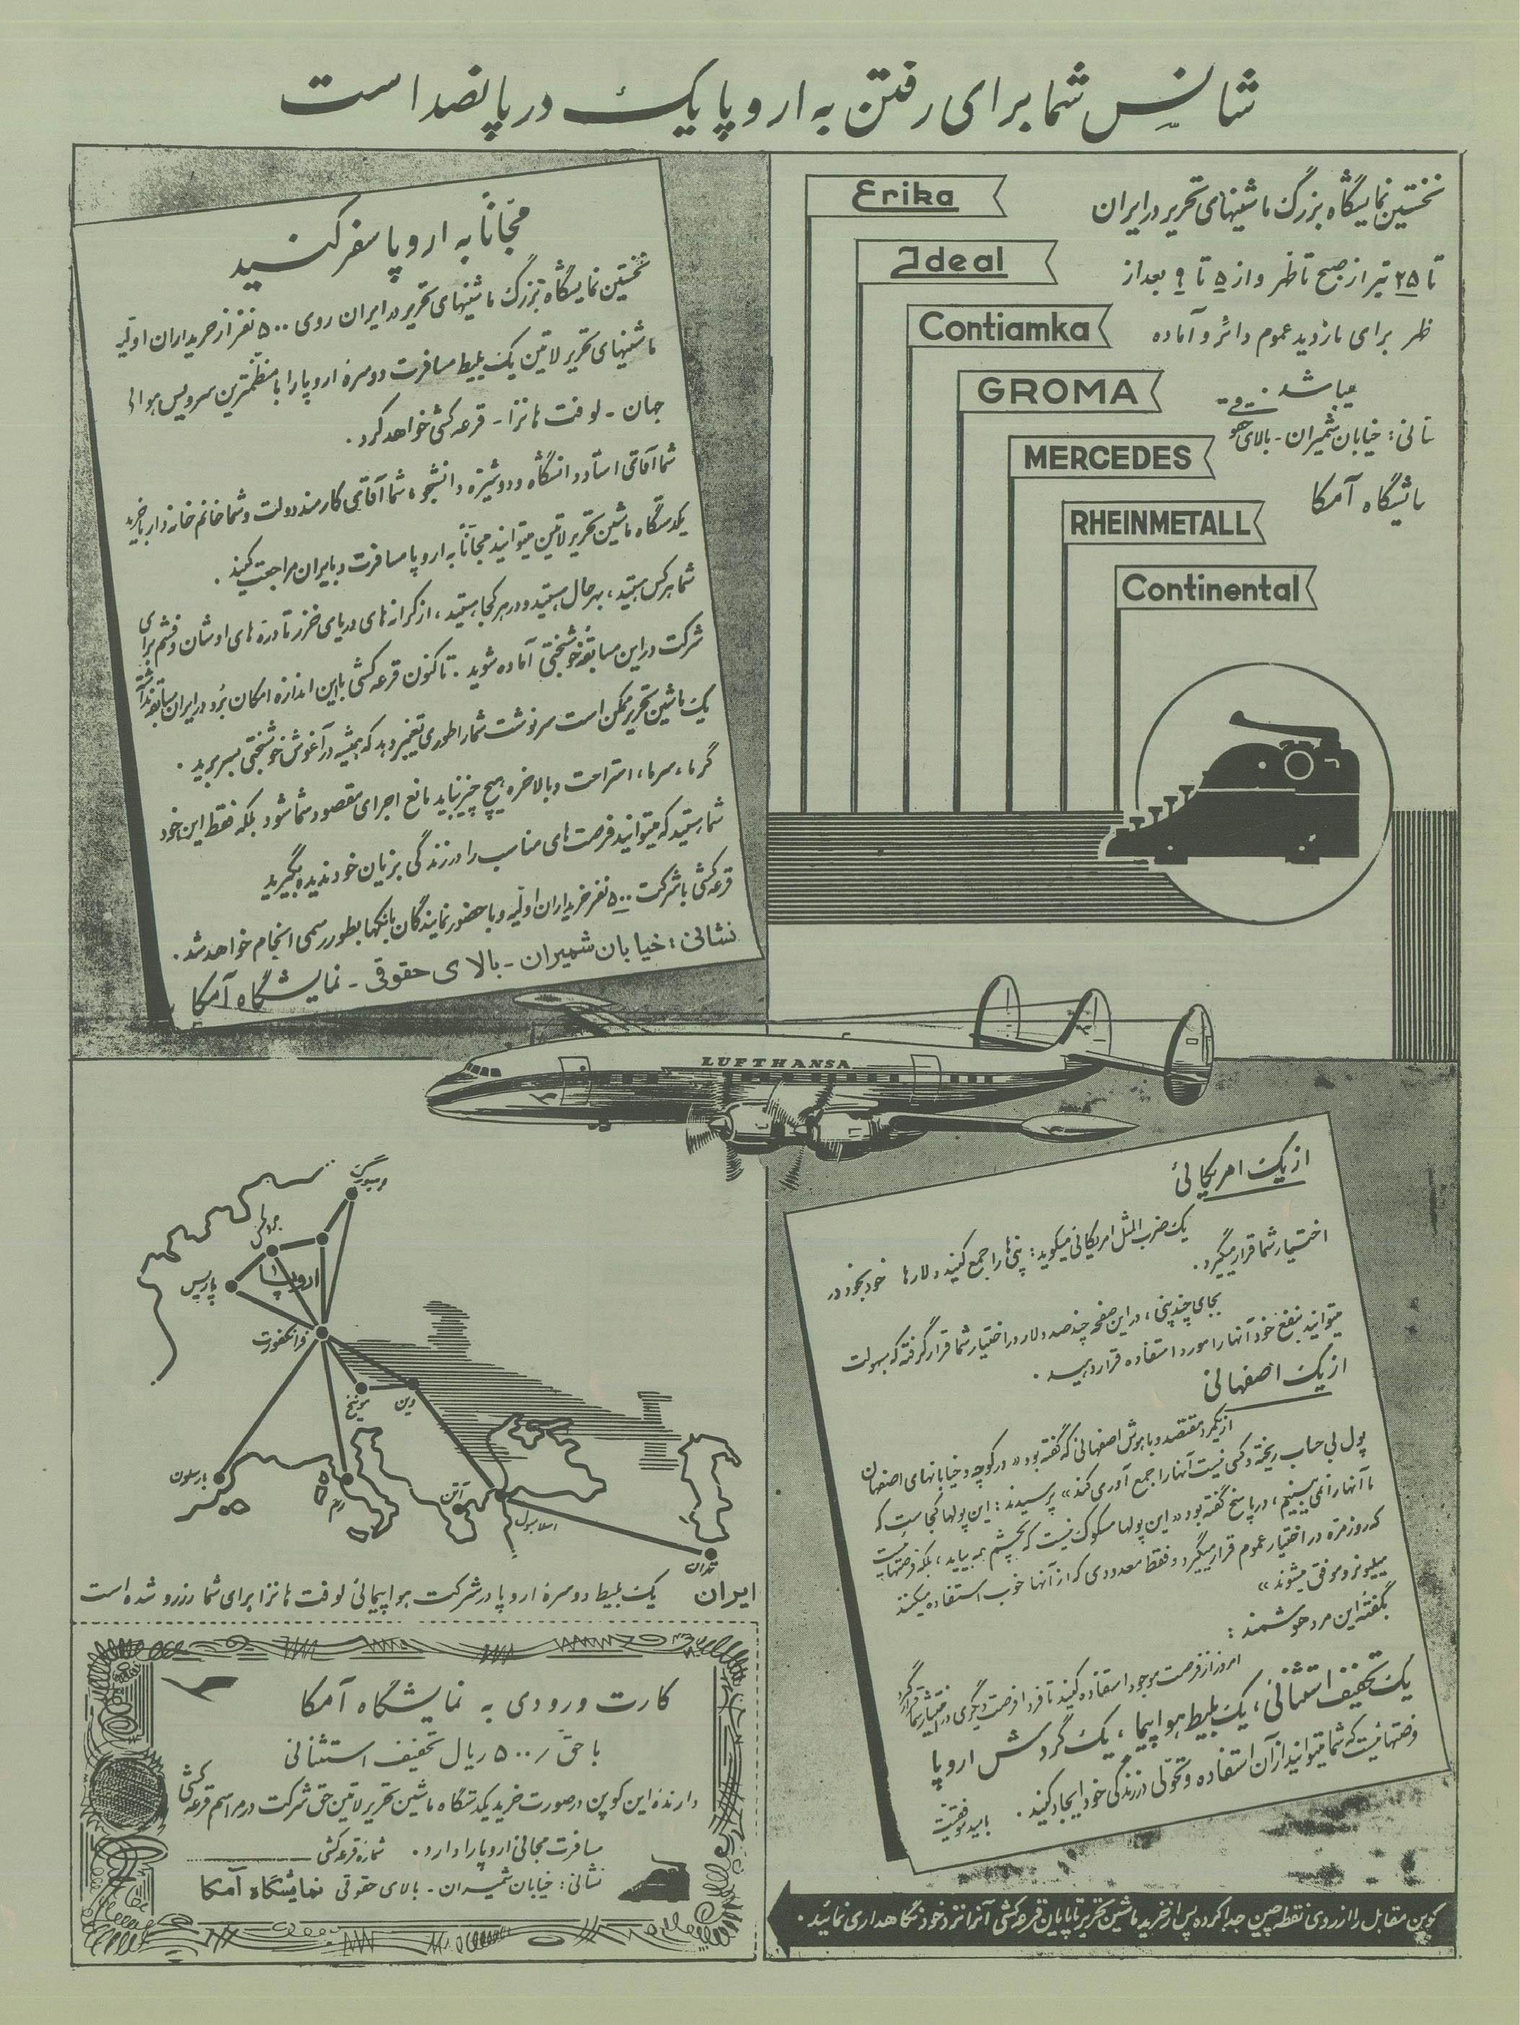 شانس شما برای رفتن به اروپا یک در پانصد است
نخستین نمایشگاه بزرگ ماشینهای تحریر در ایران
تا ۲۵ تیر از صبح تا ظهر و از ۵ تا ۹ بعد از
ظهر برای بازدید عموم دائر و آماده
میباشد
نشانی: خیابان شمیران - بالای حقوقی
نمایشگاه آمکا
Erika
Ideal
Contiamka
GROMA
MERCEDES
RHEINMETALL
Continental
مجّاناً به اروپا سفر کنید
نخستین نمایشگاه بزرگ ماشینهای تحریر در ایران روی ۵۰۰ نفر از خریداران اولیّه
ماشینهای تحریر لاتین یک بلیط مسافرت دوسره اروپا را با منظمترین سرویس هوائی
جهان - لوفت هانزا - قرعه کشی خواهد کرد .
شما آقای استاد دانشگاه و دوشیزه دانشجو ، شما آقای کارمند دولت و شما خانم خانه دار با خرید
یکدستگاه ماشین تحریر لاتین میتوانید مجاناً به اروپا مسافرت و بایران مراجعت کنید .
شما هر کس هستید ، بهر حال هستید و در هر کجا هستید ، از کرانه های دریای خزر تا دره های اوشان و فشم برای
شرکت در این مسابقه خوشبختی آماده شوید . تاکنون قرعه کشی باین اندازه امکان بُرد در ایران سابقه نداشته
یک ماشین تحریر ممکن است سرنوشت شما را طوری تغییر دهد که همیشه در آغوش خوشبختی بسر برید .
گرما ، سرما ، استراحت و بالاخره هیچ چیز نباید مانع اجرای مقصود شما شود بلکه فقط این خود
شما هستید که میتوانید فرصت های مناسب را در زندگی بزیان خود ندیده بگیرید
قرعه کشی با شرکت ۵۰۰ نفر خریداران اولیّه و با حضور نمایندگان بانکها بطور رسمی انجام خواهد شد .
نشانی : خیابان شمیران - بالای حقوقی - نمایشگاه آمکا
LUFTHANSA
از یک امریکائی
یک ضرب المثل امریکائی میگوید : پنی ها را جمع کنید دلارها خود بخود در
اختیار شما قرار میگیرد .
بجای چند پنی ، در این صفحه چند صد دلار در اختیار شما قرار گرفته که بسهولت
میتوانید بنفع خود آنها را مورد استفاده قرار دهید .
از یک اصفهانی
از یکمرد مقتصد و باهوش اصفهانی که گفته بود « در کوچه و خیابانهای اصفهان
پول بی حساب ریخته و کسی نیست آنها را جمع آوری کند » پرسیدند : این پولها کجاست که
ما آنها را نمی بینیم ، در پاسخ گفته بود « این پولها مسکوک نیست که بچشم همه بیاید ، بلکه فرصتهائیست
که روزمره در اختیار عموم قرار میگیرد و فقط معدودی که از آنها خوب استفاده میکنند
میلیونر و موفق میشوند »
بگفته این مرد هوشمند :
امروز از فرصت موجود استفاده کنید تا فردا فرصت دیگری در اختیار شما قرار گیرد
یک تخفیف استثنائی ، یک بلیط هواپیما ، یک گردش اروپا
فرصتهائیست که شما میتوانید از آن استفاده و تحولی در زندگی خود ایجاد کنید .
بامید موفقیت
بروکسل
پاریس
اروپا
فرانکفورت
مونیخ
وین
بارسلون
رم
آتن
اسلامبول
تهران
ایران
یک بلیط دوسره اروپا در شرکت هواپیمائی لوفت هانزا برای شما رزرو شده است
کارت ورودی به نمایشگاه آمکا
با حقّ /۵۰۰ ریال تخفیف استثنائی
دارنده این کوپن در صورت خرید یکدستگاه ماشین تحریر لاتین حق شرکت در مراسم قرعه کشی
مسافرت مجانی اروپا را دارد . شماره قرعه کشی
نشانی : خیابان شمیران - بالای حقوقی نمایشگاه آمکا
کوپن مقابل را از روی نقطه چین جدا کرده پس از خرید ماشین تحریر تا پایان قرعه کشی آنرا نزد خود نگاهداری نمائید .